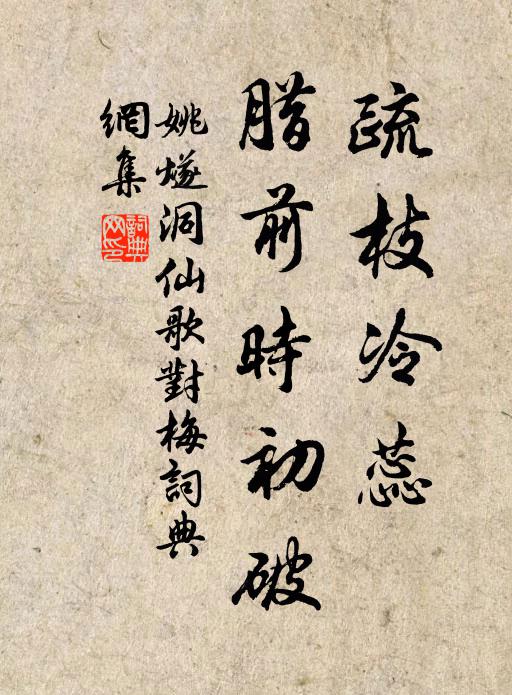 疏枝冷蕊
腊前時初破
姚燧洞仙歌對梅詞典
網集
詞典网印